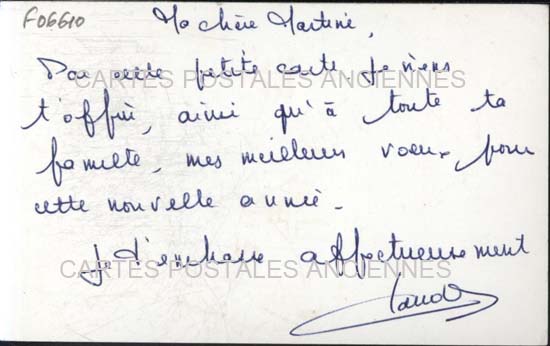 F06610
Ma chère Martine,
Par cette petite carte je viens
CARTES POSTALES ANCIENNES
t'offrir, ainsi qu'à toute ta
famille, mes meilleurs voeux pour
cette nouvelle année.
Je t'embrasse affectueusement
CARTES POSTALES ANCIENNES